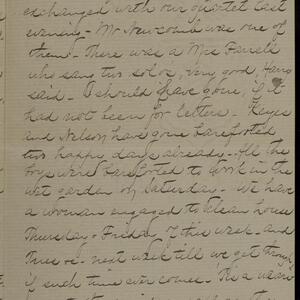 exchanged with our quartet last
evening - Mr Newcomb was one of
them - There was a Mrs Farrell
who sang two solos, very good Harry
said - I should have gone, if it
had not been for letters - Keyes
and Nelson have gone barefooted
two happy days already - All the
boys were barefooted to work in the
wet garden on Saturday - We have
a woman engaged to clean house
Thursday & Friday of this week - and
Tues &c. next week till we get through
if such time ever comes - This a